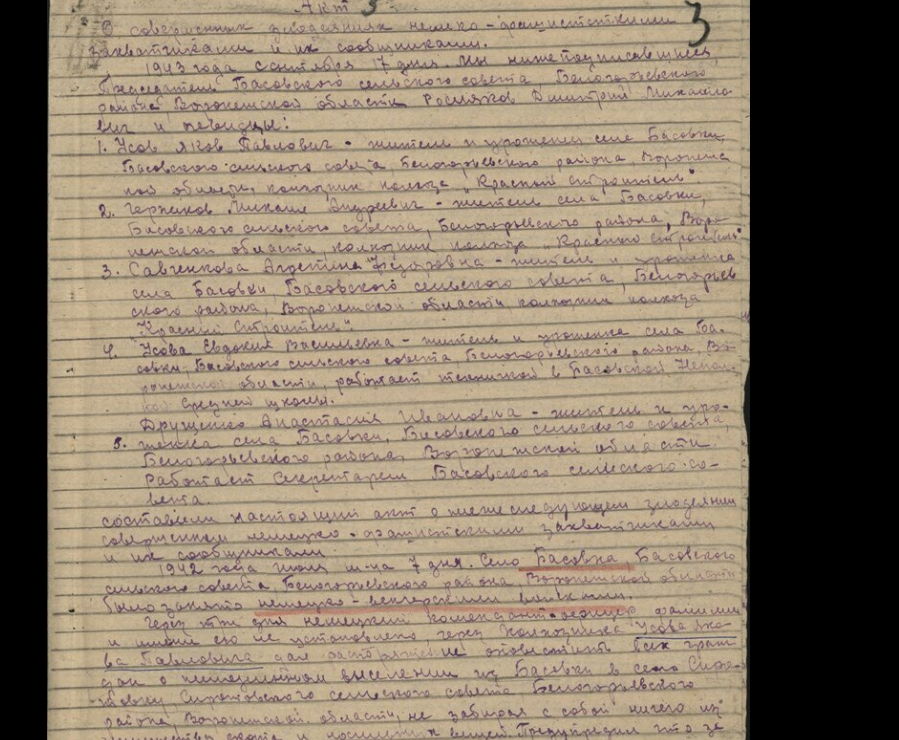 Акт 3
О совершенных злодеяниях немецко-фашистскими 3
захватчиками и их сообщниками.
1943 года сентября 17 дня. Мы нижеподписавшиеся,
Председатель Басовского сельского совета Белогорьевского
района Воронежской области Росляков Дмитрий Михайло
вич и очевидцы:
1. Усов Яков Павлович - житель и уроженец села Басовки,
Басовского сельского совета, Белогорьевского района, Воронежс
кой области, колхозник колхоза "Красный Строитель"
2. Михаил Андреевич - житель села Басовки,
Басовского сельского совета, Белогорьевского района, Воро-
нежской области, колхозник колхоза "Красный Строитель"
3. Савченкова Федоровна - житель и уроженка
села Басовки, Басовского сельского совета, Белогорьев
ского района, Воронежской области колхозник колхоза
"Красный Строитель".
4. Усова Евдокия Васильевна - житель и уроженка села Ба-
совки, Басовского сельского совета Белогорьевского района, Во-
ронежской области, работает техничкой в Басовской Непол-
ной Средней школы.
Друщенко Анастасия Ивановна - житель и уро-
5. женка села Басовки, Басовского сельского совета,
Белогорьевского района, Воронежской области
Работает Секретарем Басовского сельского со-
вета.
составили настоящий акт о нижеследующем злодеянии
совершенном немецко-фашистскими захватчиками
и их сообщниками.
1942 года июля м-ца 7 дня. Село Басовка Басовского
сельского совета, Белогорьевского района Воронежской области
было занято немецко-венгерскими войсками.
Через три дня немецкий комендант-офицер фамилии
и имени его не установлено, через колхозника Усова Яко-
ва Павловича дал распоряжение оповестить всех граж
дан о немедленном выселении из Басовки в село
сельского совета Белогорьевского
района, Воронежской области, не забирая с собой ничего из
имущества скота и вещей. Предупредил что за